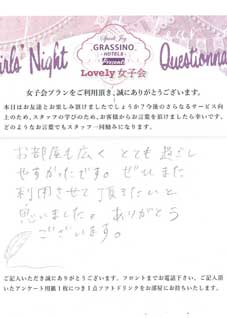 Sparkle Joy
GRASSINO
-HOTELS-
Present
Girls' Night
Lovely 女子会
Questionna
女子会プランをご利用頂き、誠にありがとうございます。
本日はお友達とお楽しみ頂けましたでしょうか？今後のさらなるサービス向
上のため、スタッフの学びのため、お客様からお言葉を頂けましたら幸いです。
どのようなお言葉でもスタッフ一同励みになります。
お部屋も広く とても 過ごし
やすかったです。 ぜひ また
利用させて 頂きたいと
思いました。 ありがとう
ございます。
ご記入いただき誠にありがとうございます。フロントまでお電話下さい。ご記入頂
いたアンケート用紙1枚につき1点ソフトドリンクをお部屋にお持ちいたします。